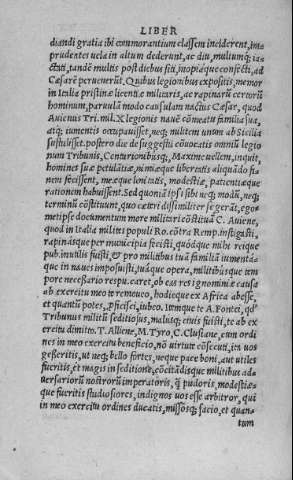 LIBER
diandi gratia ibi cōmorantium classem inciderent, im⸗
prudentes vela in altum dederunt, ac diu, multumq; ia⸗
ctati, tandē multis post diebus siti, inopiaque confecti, ad
Cæsarē peruenerūt. Quibus legionibus expositis, memor
in Italia pristinæ licentiæ militaris, ac rapinarū certorū
hominum, paruula modo causulam nactus Cæsar, quod
Auienus Tri. mil. X legionis nauē cōmeatu familia sua,
atq; iumentis occupauisset, neq; militem unum ab Sicilia
sustulisset. postero die de suggestu cōuocatis omniū legio
num Tribunis, Centurionibusq;, Maxime vellem, inquit,
homines suæ petulātiæ, nimiæque libertatis aliquādo fi⸗
nem fecissent, meæque lenitatis, modestiæ, patientiæque
rationem habuissent. Sed quoniā ipsi sibi neq; modū, neq;
terminū cōstituunt, quo cæteri dissimiliter se gerāt, ego⸗
metipse documentum more militari cōstituā C. Auiene,
quod in Italia milites populi Ro. cōtra Remp. instigasti,
rapinasque per municipia fecisti, quódque mihi reique
pub. inutilis fuisti, & pro militibus tuā familiā iumenta⸗
que in naues imposuisti, tuáque opera, militibusque tem
pore necessario respu. caret, ob eas res ignominiæ causa
ab exercitu meo te remoueo, hodieque ex Africa abesse,
et quantū potes, ꝓficisci, iubeo. itemque te A. Fontei, qd'
Tribunus militū seditiosus, malusq; ciuis fuisti, te ab ex
ercitu dimitto. T. Alliene, M. Tyro, C. Clusiane, cum ordi
nes in meo exercitu beneficio, nō virtute cōsecuti, ita vos
gesseritis, ut neq; bello fortes, neque pace boni, aut utiles
fueritis, et magis in seditione, cōcitādisque militibus ad⸗
uersariorū nostrorū imperatoris, q̃ pudoris, modestiæ⸗
que fueritis studiosiores, indignos uos esse arbitror, qui
in meo exercitu ordines ducatis, missósq; facio, et quan⸗
tum